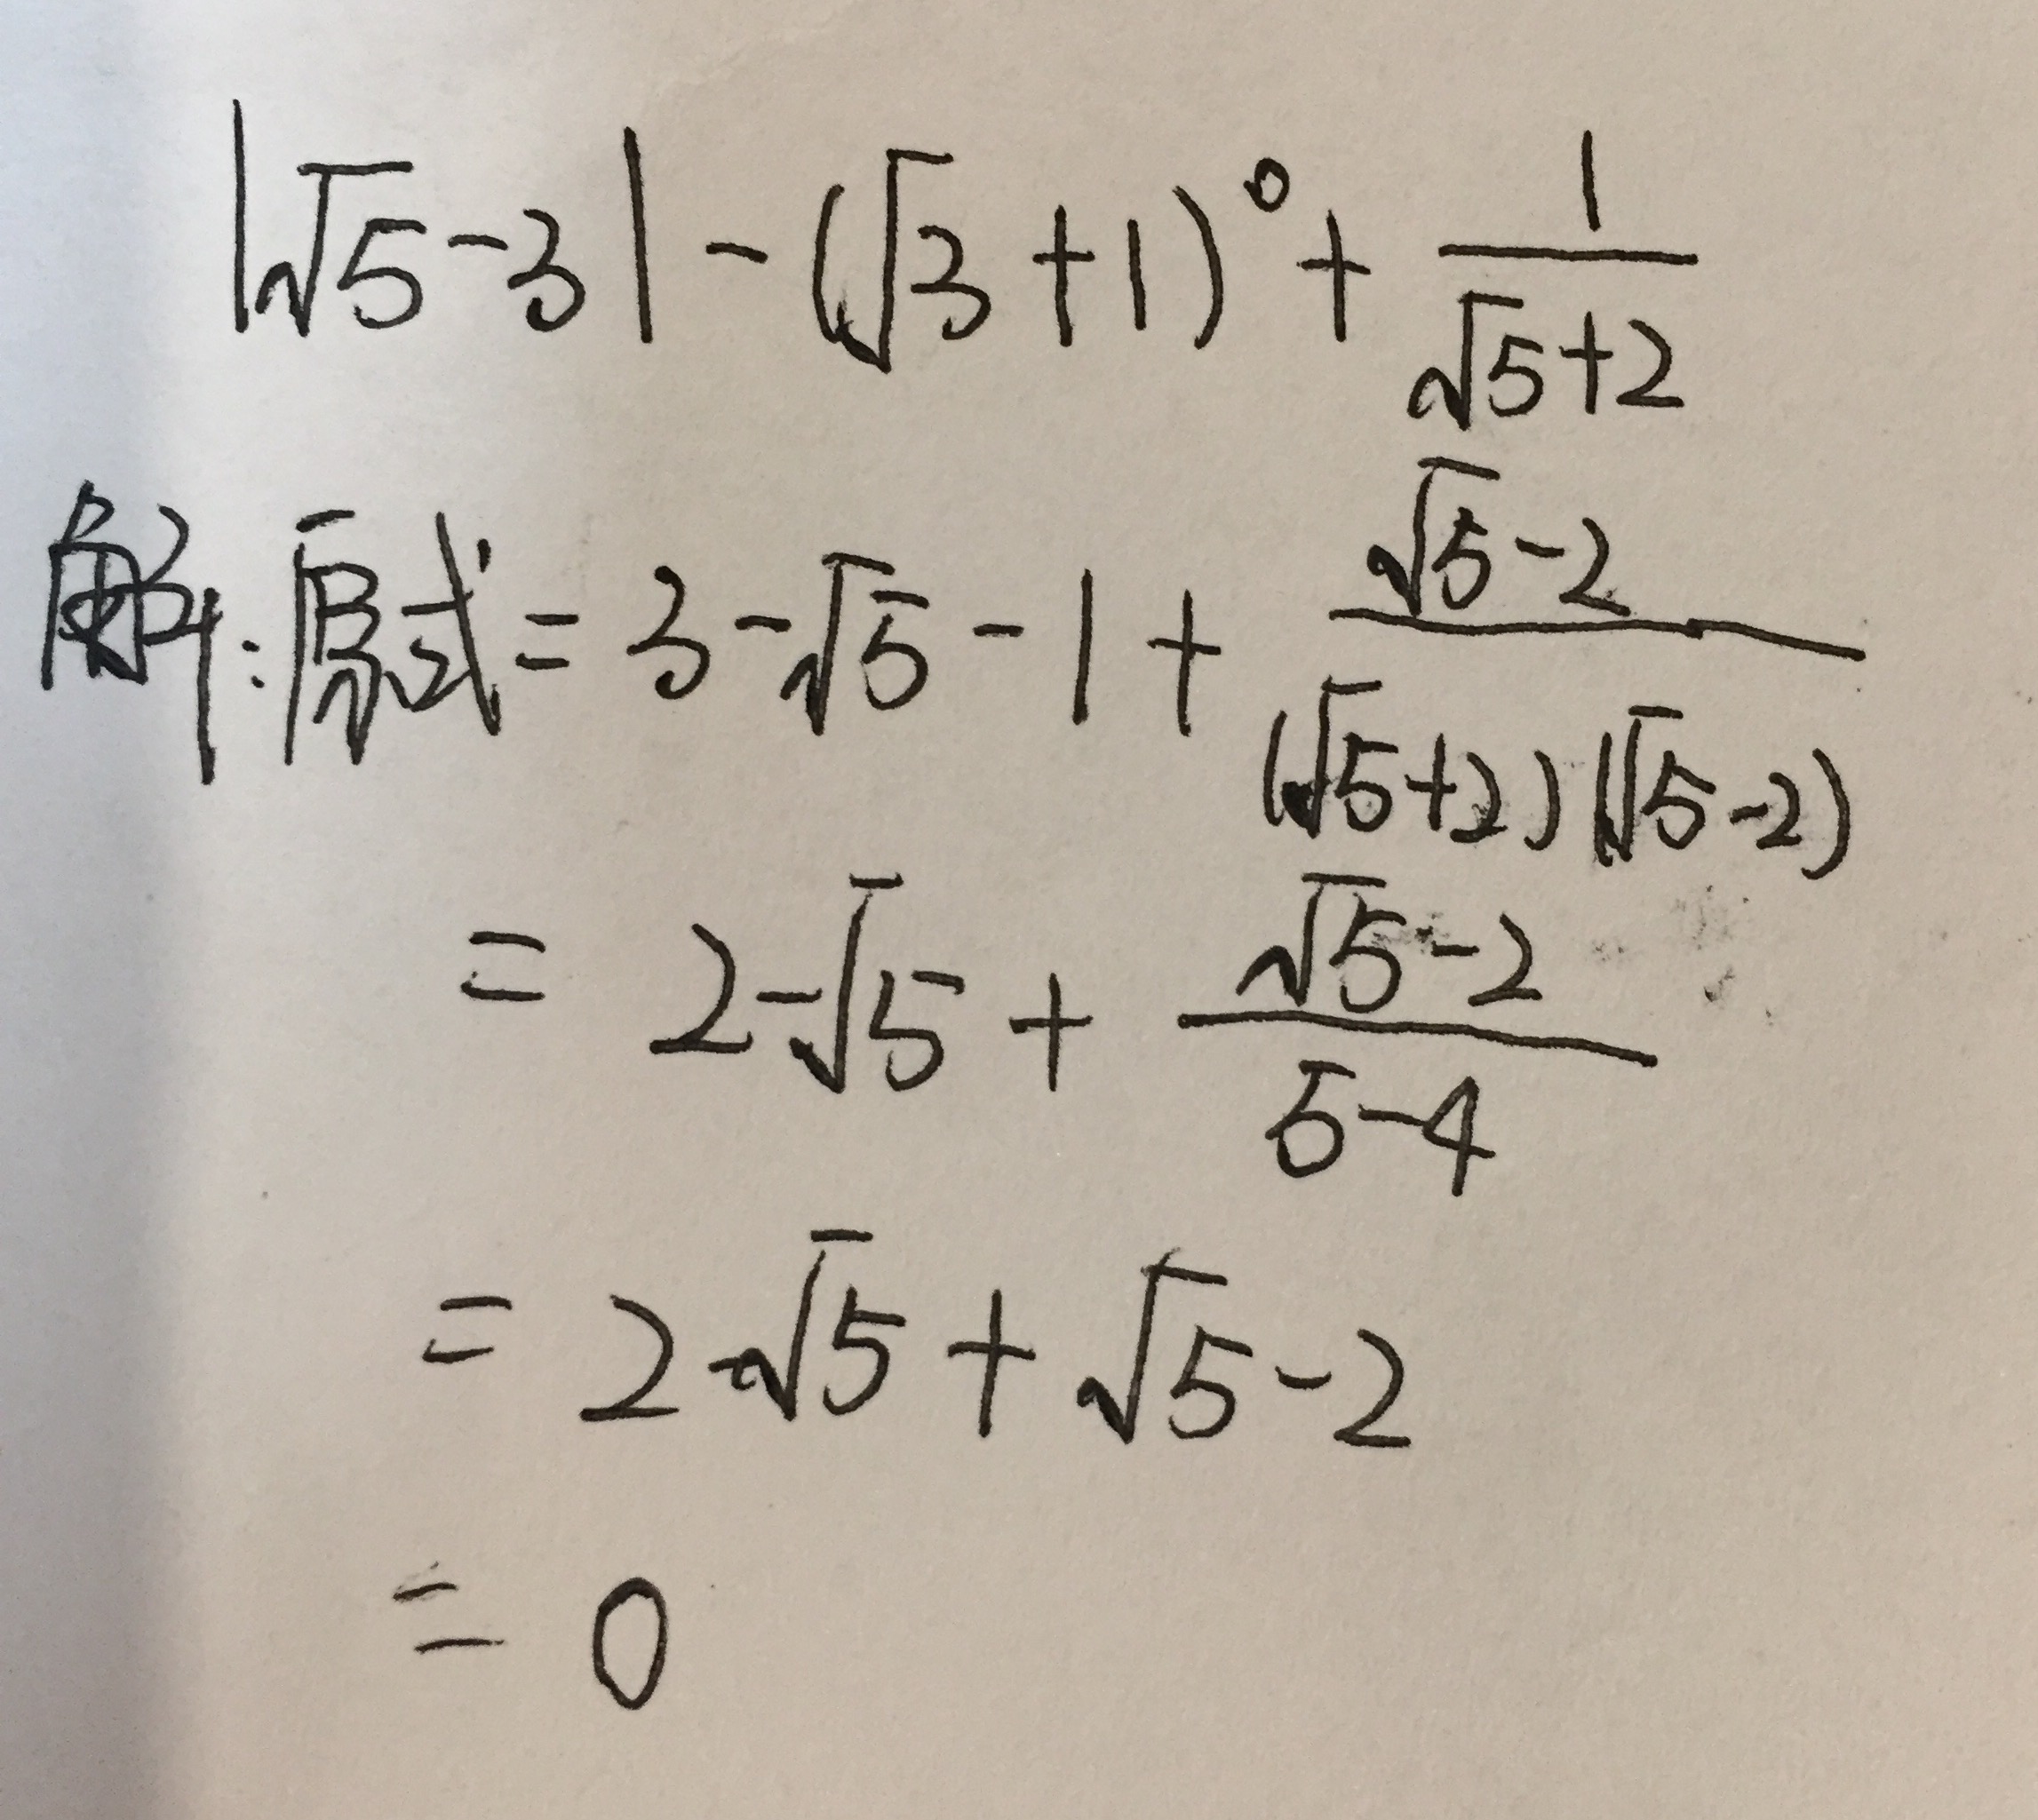 |√5-3|-(√3+1)⁰+1/(√5+2)
解:原式=3-√5-1+(√5-2)/((√5+2)(√5-2))
=2-√5+(√5-2)/(5-4)
=2-√5+√5-2
=0